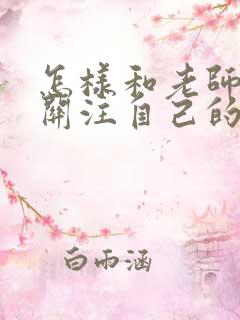 怎樣和老師
關注自己的
白雨涵